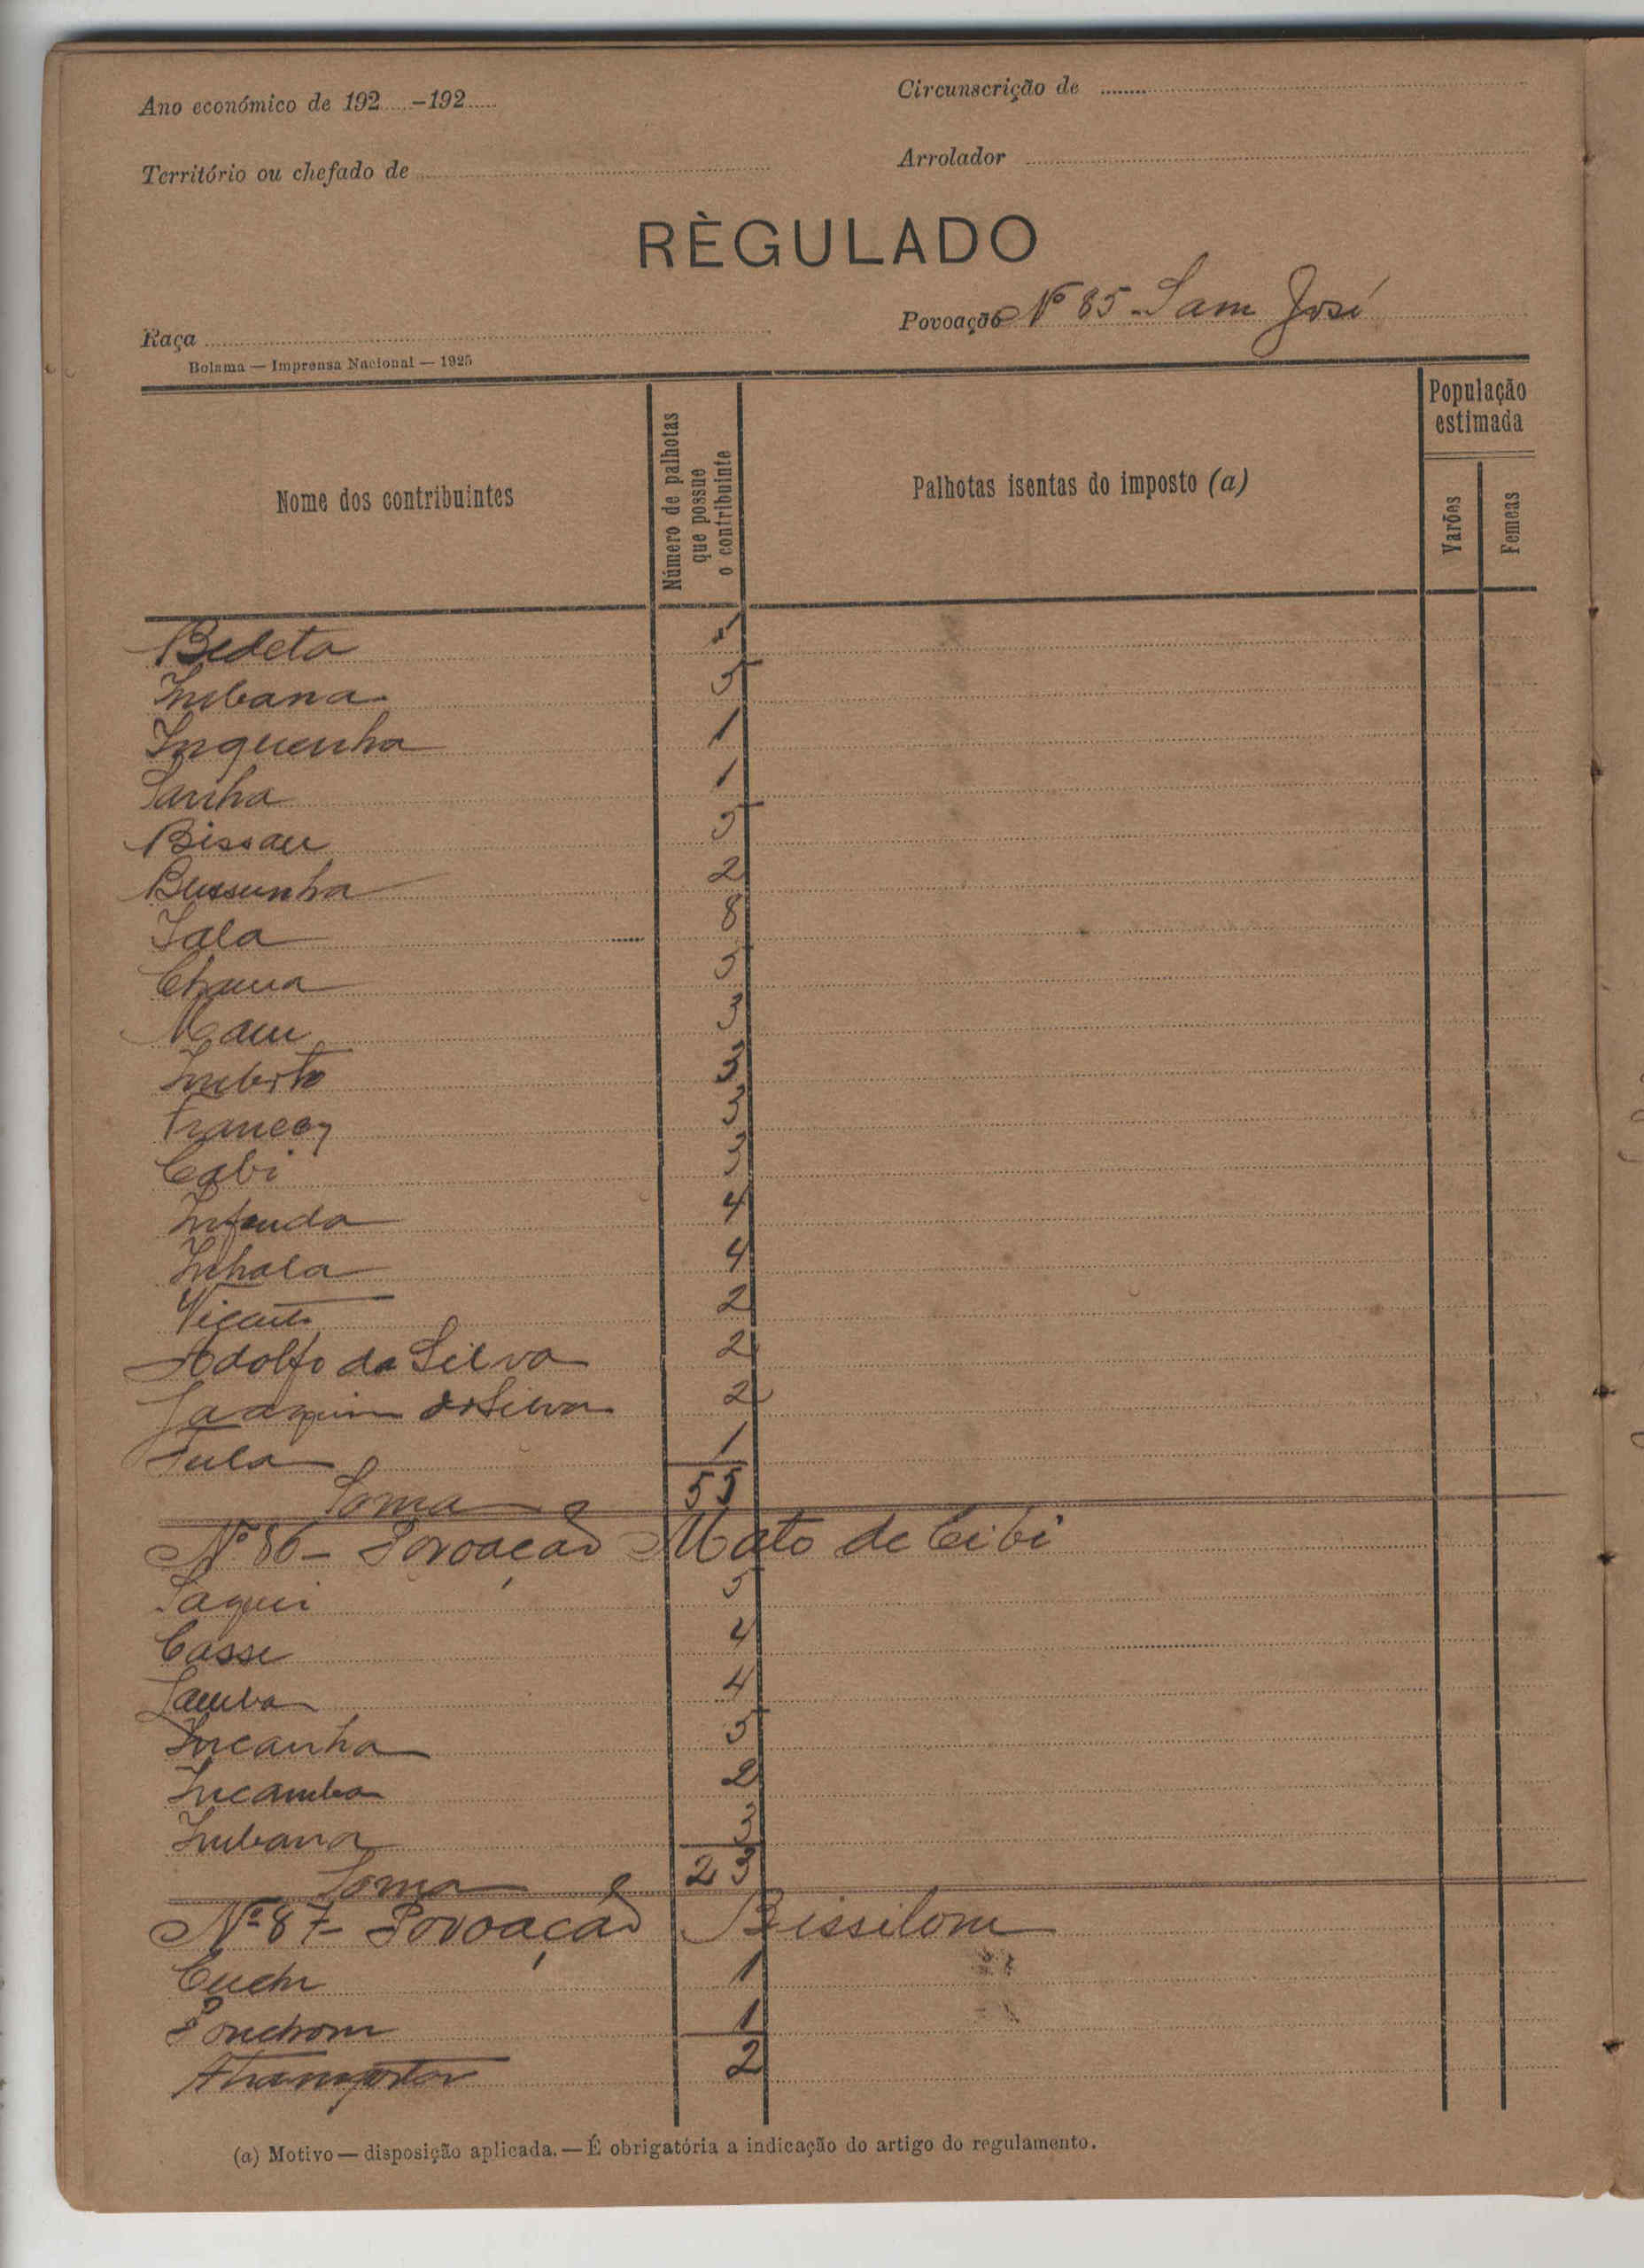 Ano económico de 192.....-192.....
Circunscrição de
Território ou chefado de
Arrolador
RÈGULADO
Povoação Nº 85 - Sam José
Raça
Bolama — Imprensa Nacional — 1925
Nome dos contribuintes
Número de palhotas que possue o contribuinte
Palhotas isentas do imposto (a)
População estimada
Varões
Femeas
Bedeta 1
Inbana 5
Inquenha 1
Sanha 1
Bissau 5
Bussunha 2
Iala 8
5
3
3
3
Cabi 3
Infanda 4
Inhala 4
Vicente 2
Adolfo da Silva 2
Joaquim da Silva 2
Tula 1
Soma 55
Nº 86 - Povoação Mato de Cibi
Saqui 5
Casse 4
Samba 4
Incanha 5
Incamba 2
Inbana 3
Soma 23
Nº 87 - Povoação Bissilom
1
1
Transporta 2
(a) Motivo — disposição aplicada. — É obrigatória a indicação do artigo do regulamento.